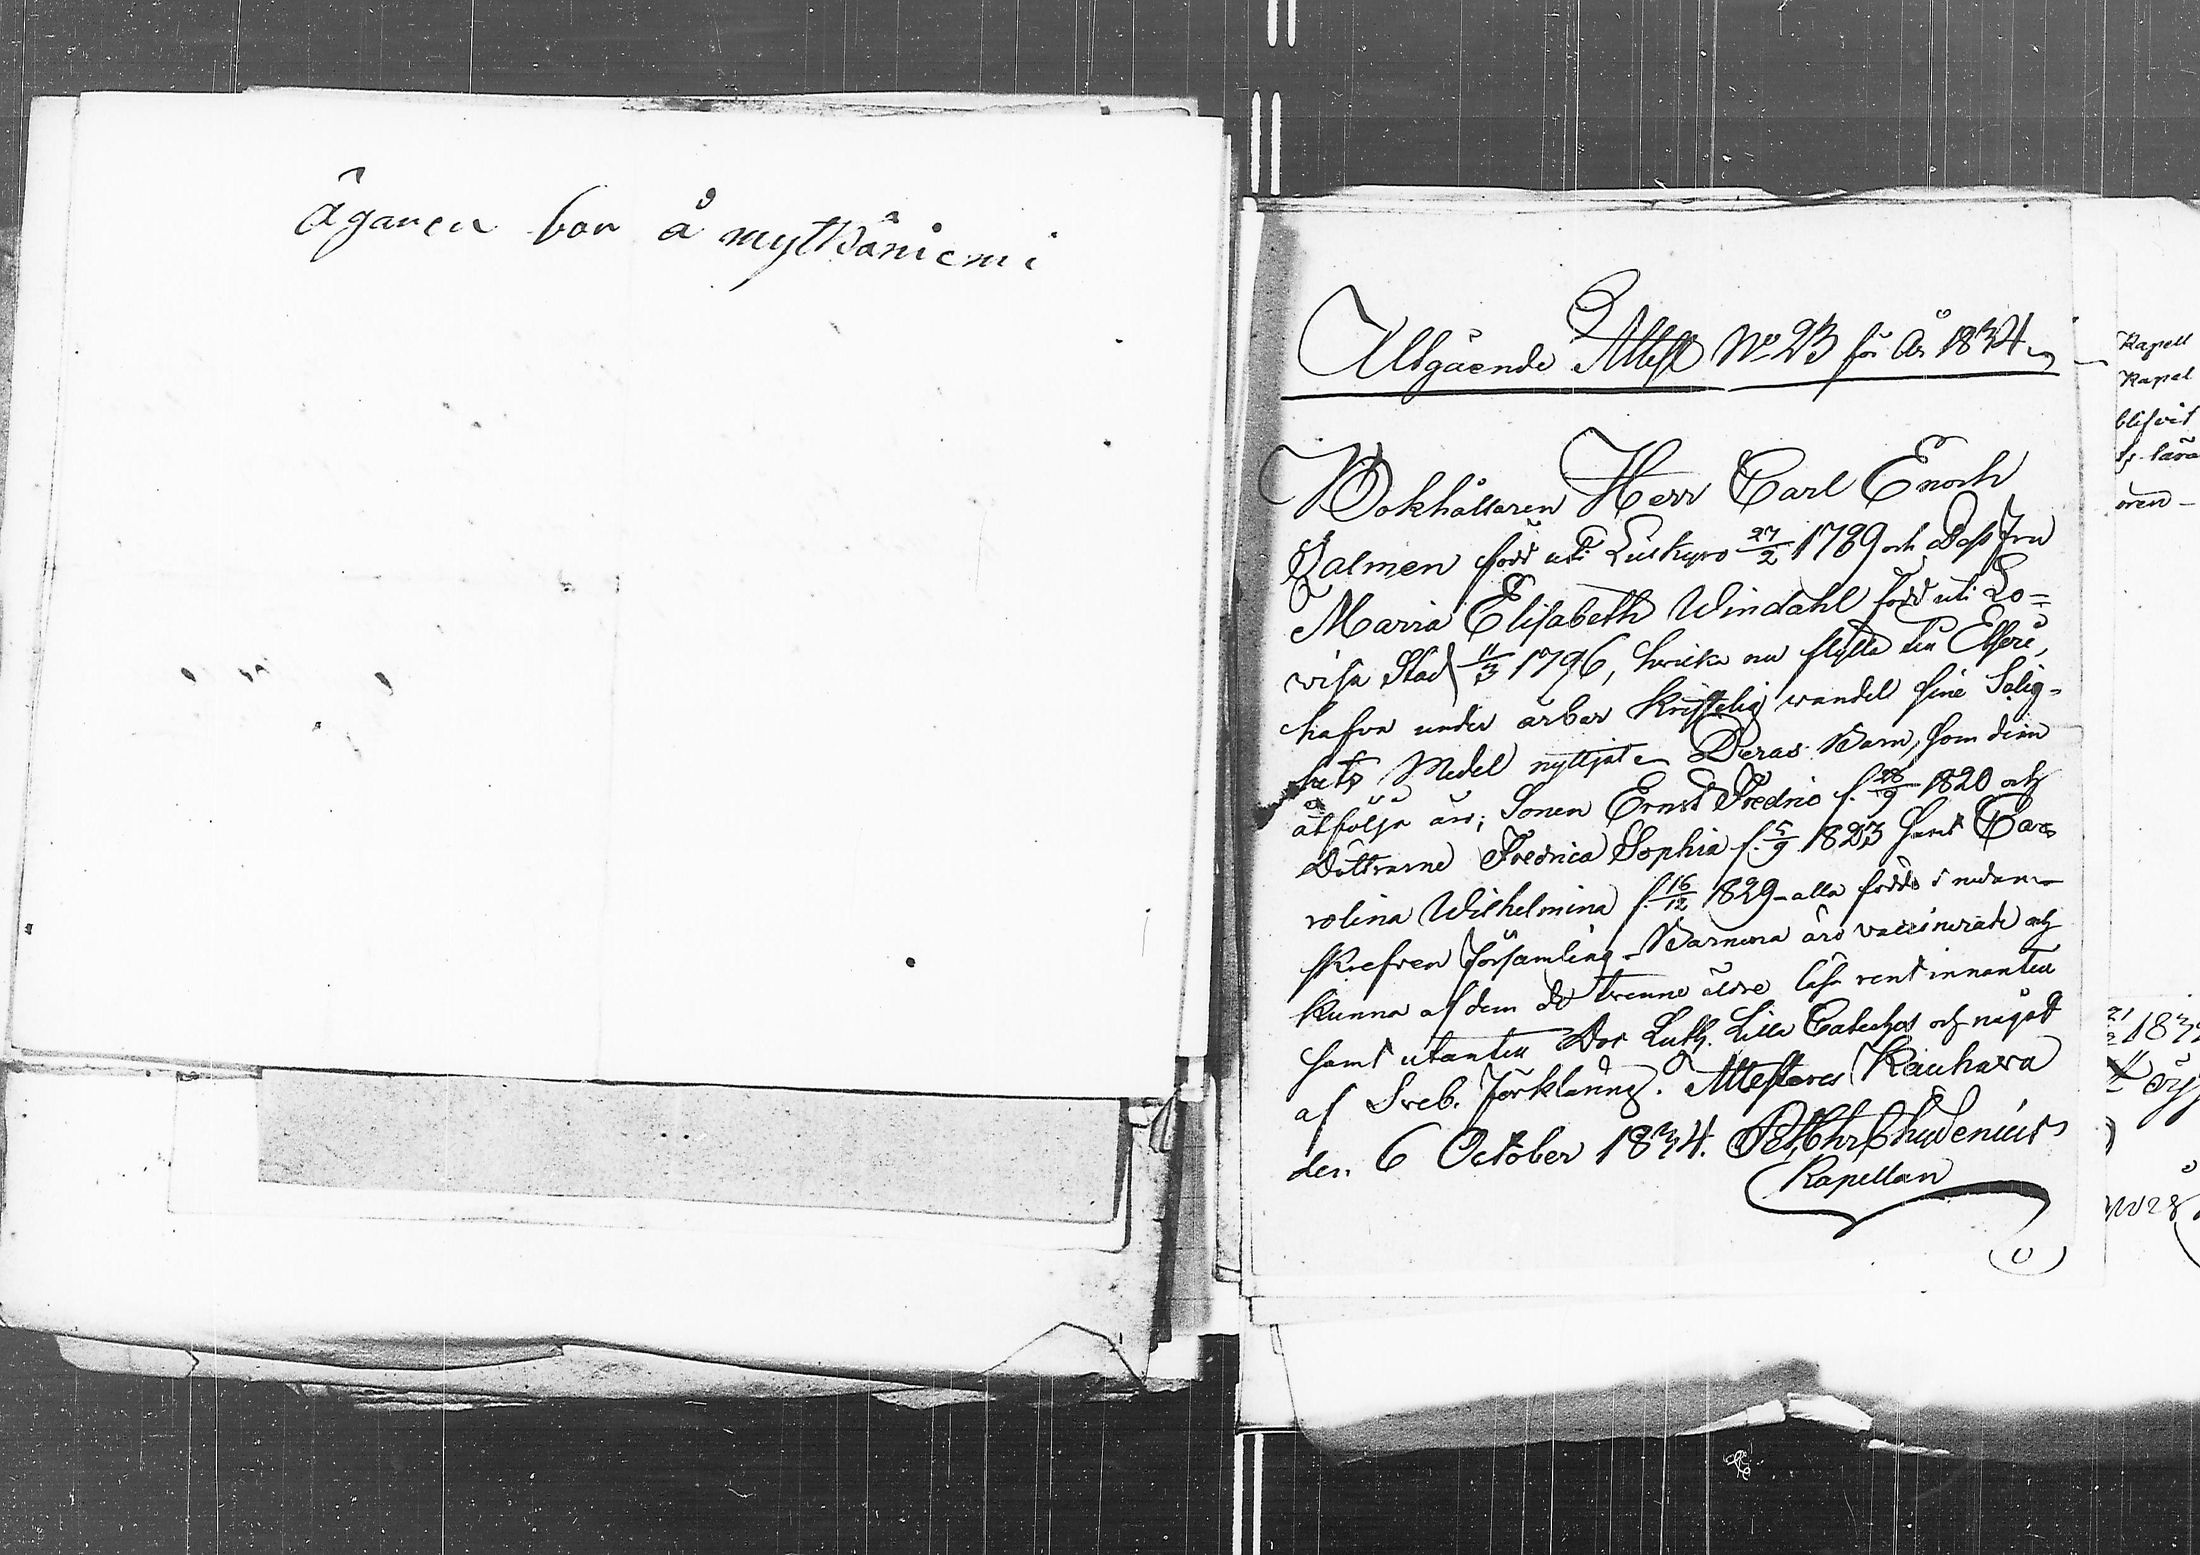 ägaren bor å mytkäniemi
Utgående Attest No 23 för År 1834
Bokhållaren Herr Carl Enoch
Salmen född uti Lillkyro 27/2 1789 och Dess Fru
Maria Elisabeth Windahl född uti Lo=
visa Stad 11/3 1796, hvilka nu flytta till Etseri,
hafva under ärbar kristelig wandel sine Salig-
hets Medel nyttjat. Deras Barn, som dem
åtfölja äro; Sonen Ernst Fredric f. 28/9 1820 och
Döttrarne Fredrica Sophia f. 5/9 1823 samt Ca=
rolina Wilhelmina f. 16/12 1829 - alla födde i nedan-
skrefven församling - Barnena äro vaccinerade och
kunna af dem de trenne äldre läsa rent innantill
samt utantill Doc. Luth. Lilla Cateches och något
af Sveb. förklaring. Attesteras Kauhava
den 6 October 1834. Pet. Ehr. Chydenius
Kapellan
Kapell
Kapel
blifvit
lära
1832